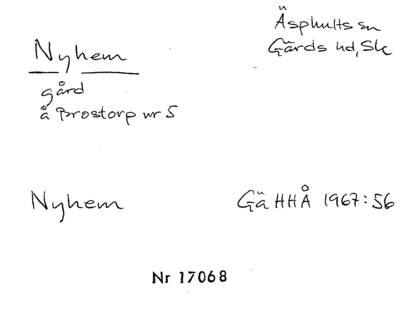 Nyhem
Äsphults sn
Gärds hd, Sk
gård
å Prostorp nr 5
Nyhem
Gä HHÅ 1967:56
Nr 17068